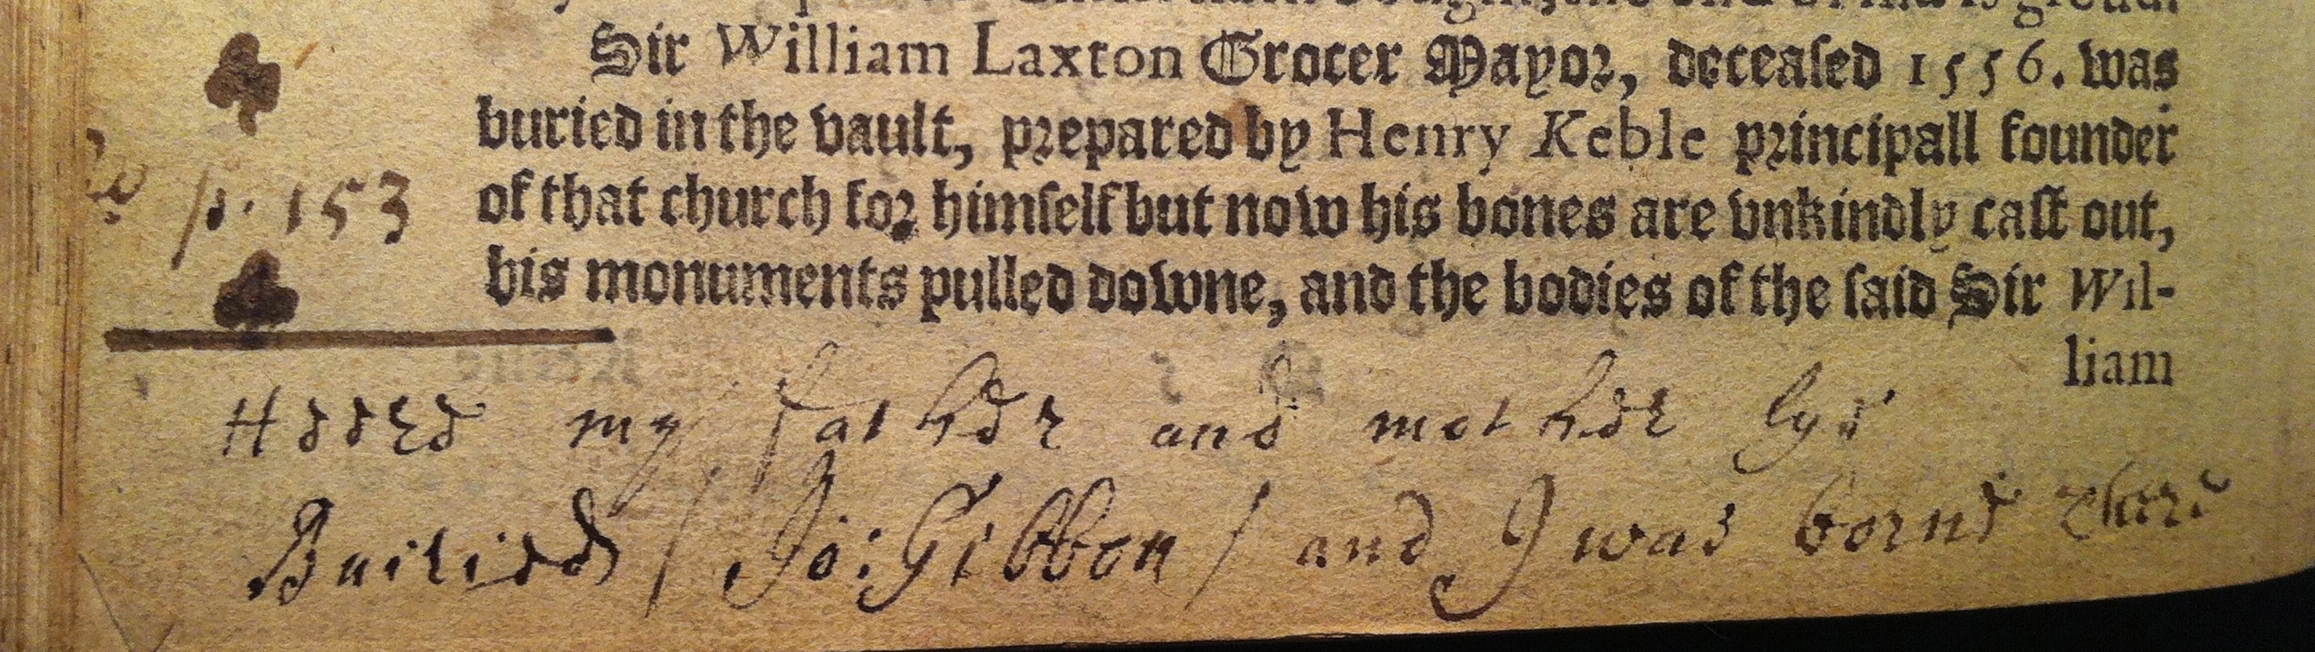 Sir William Laxton Grocer Mayor, deceaſed 1556. was
buried in the vault, prepared by Henry Keble principall founder
p. 153
of that church for himſelf but now his bones are vnkindly caſt out,
his monuments pulled downe, and the bodies of the ſaid Sir Wil-
liam
Heere my father and mother lye
Buried / Jo: Gibbon / and I was borne there